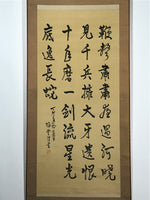 鞭聲肅肅夜過河曉
見千兵擁大牙遺恨
十年磨一剣流星光
底逸長蛇